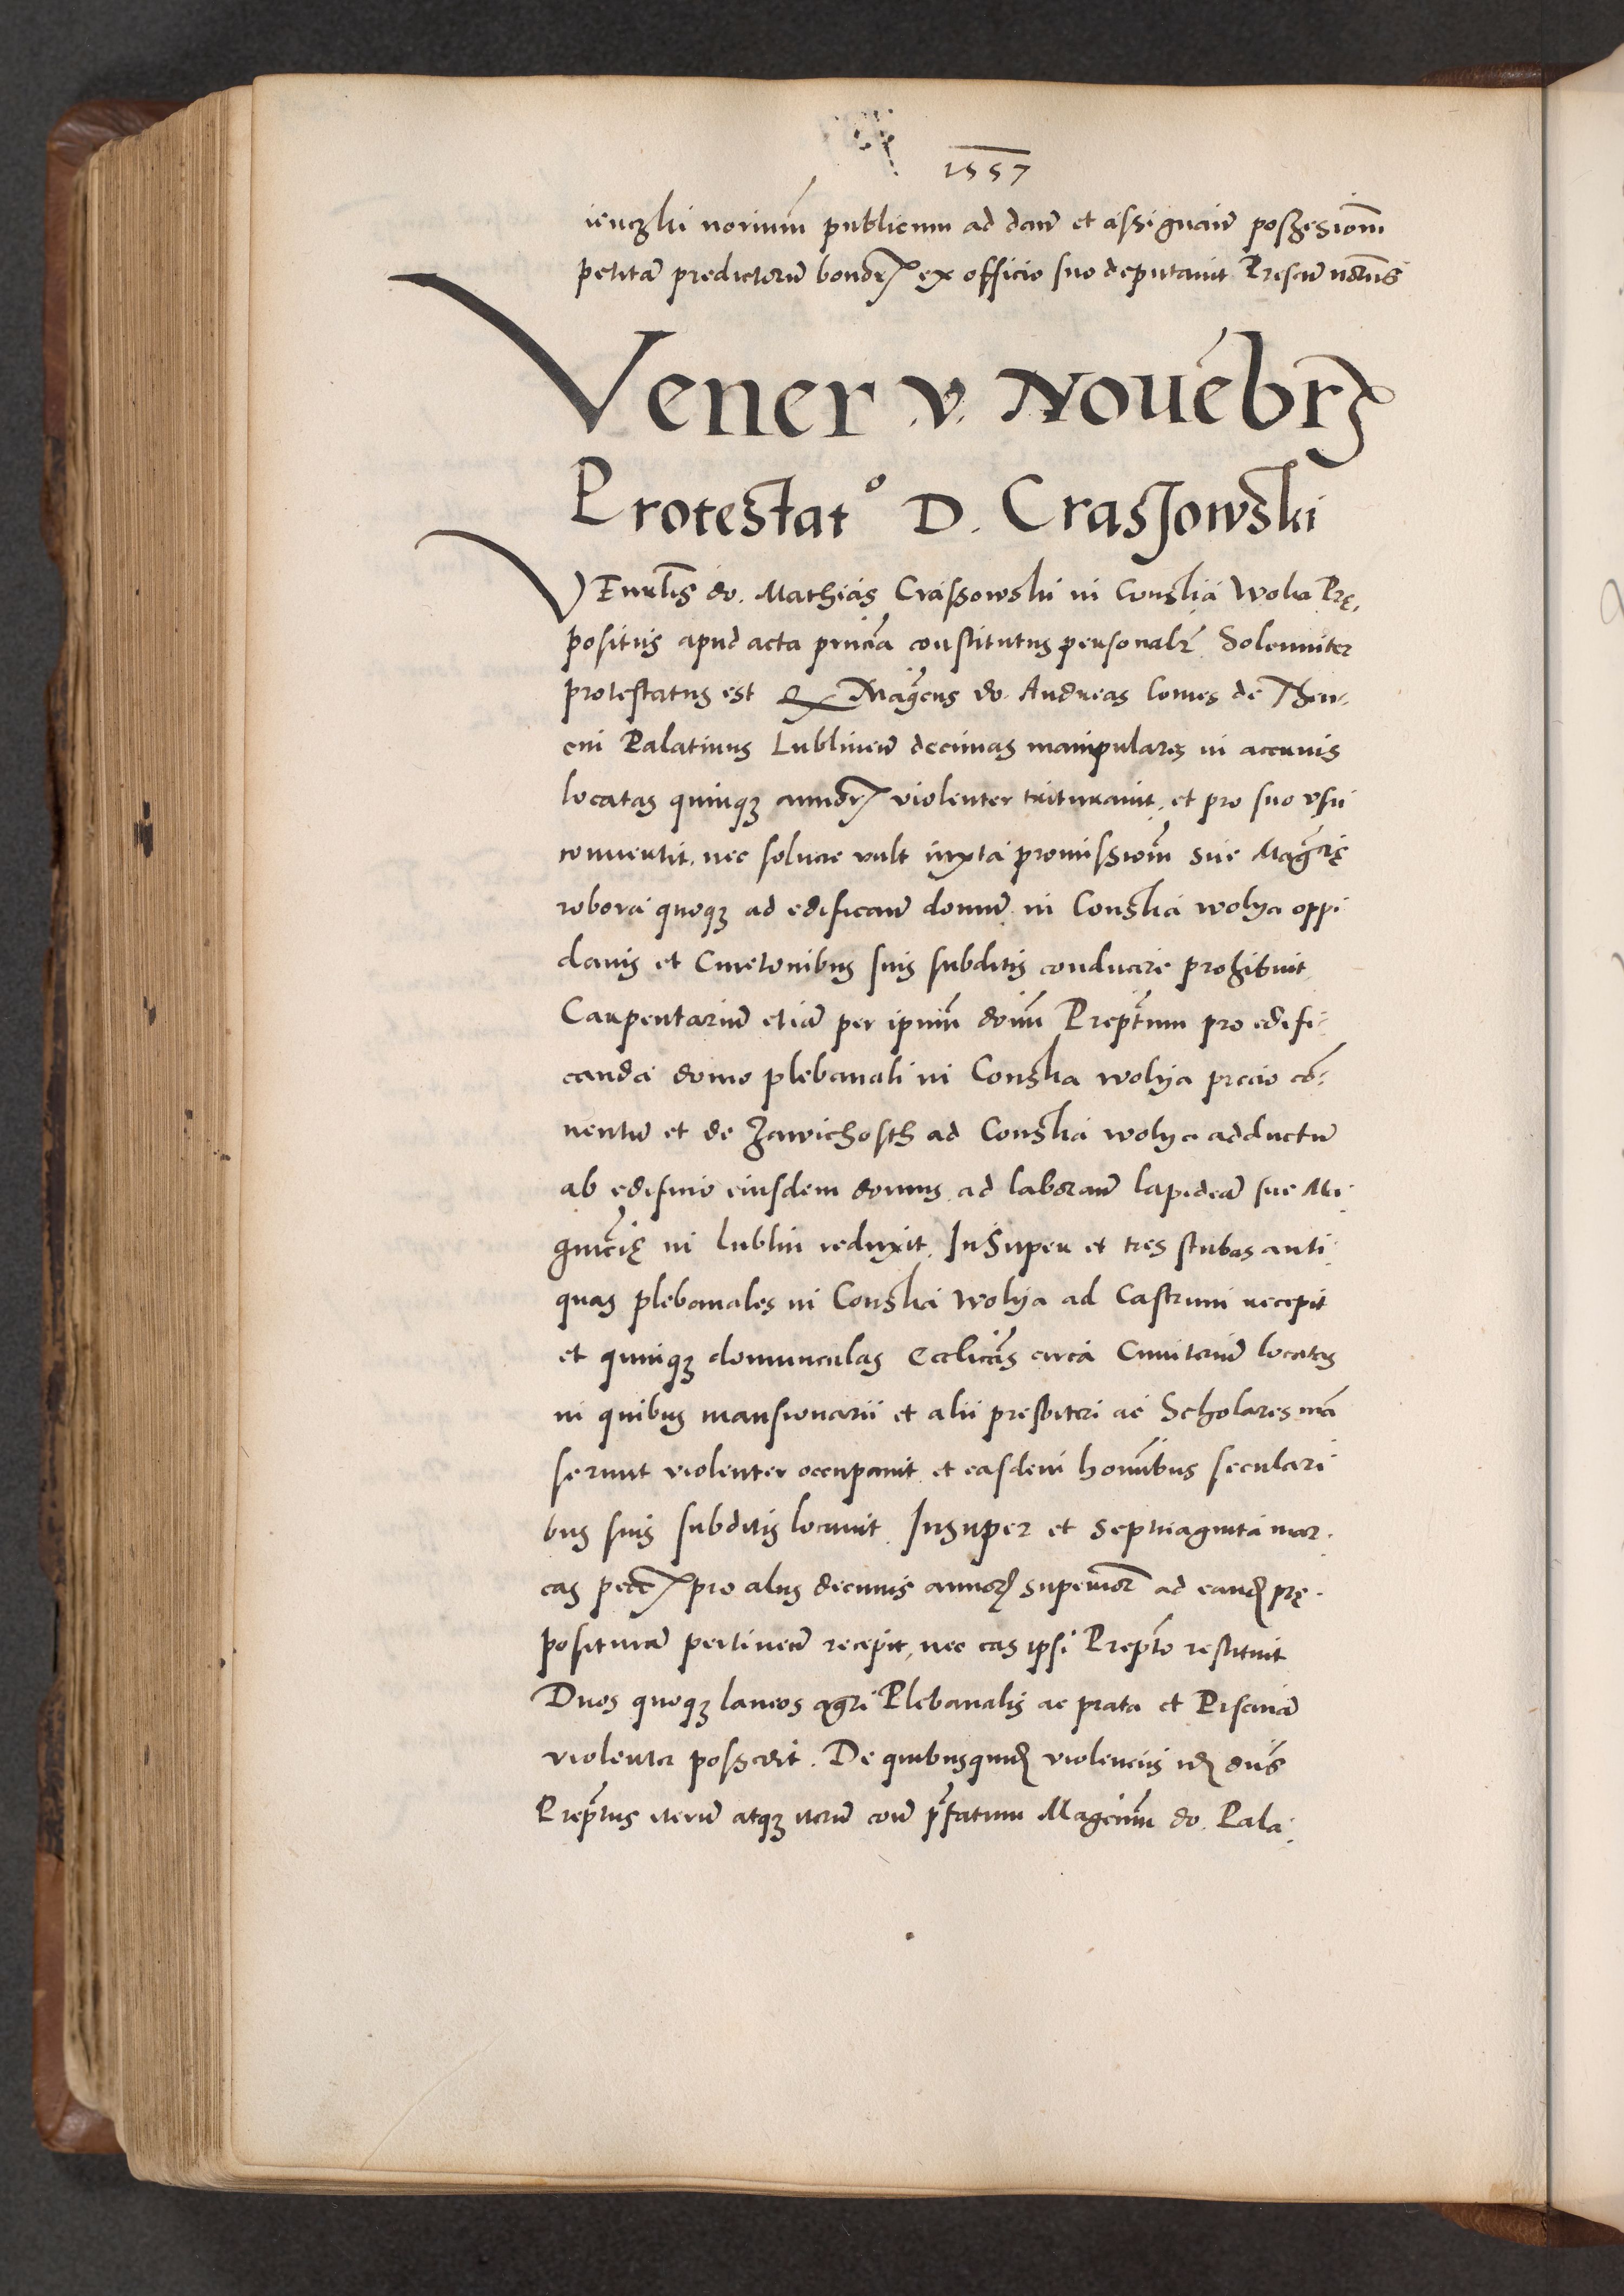 1557
ienczki norium̄ publicum ad dan̄ et assignan̄ posszesionem̄
petitā predictorū bonorꝝ ex officio suo deputauit Presen̄ notus̄
Vener v. Nouēbrꝭ
Protestatº D. Crassowski
VEnrlis̄ do. Mathias Crassowski in Conskā Wolia Prę,
positus apud acta pn̄cia constitutus personalr̄ Solenniter
protestatus est Qꝫ Mag̃cus do. Andreas Comes de Then-
cin Palatinus Lublinen̄ decimas manipulares in aceruis
locatas quinqꝫ annorꝝ violenter triturauit, et pro suo vsu
conuertit. nec soluere vult iuxta promissionem̄ sue Mag̃cię
robora quoqꝫ ad edifican̄ domū in Conskā wolya oppi
danis et Cmetonibus suis subditis conducere prohibuit
Carpentariū etiā per ipsum̄ dom̄ Preptum̄ pro edifi-
canda domo plebanali in Conska wolya precio cō-
uentū et de Zawichosth ad Conskā wolya adductū
ab edificio eiusdem domus ad laboran̄ lapideā sue Ma
gnicię in Lublin reduxit. InSuper et tres stubas anti-
quas plebanales in Conskā Wolya ad Castrum recepit
et quinqꝫ domunculas Ecclicas̄ circa Cimiteriū locatas
in quibus mansionarii et alii presbiteri ac Scholares mā
serunt violenter occupauit et easdem hominibus seculari
bus suis subditis locauit. Insuper et septuaginta mar-
cas pecc̄ꝝ pro aliis decimis annoꝝ superiorꝝ ad eandꝫ prę-
posituram pertinen̄ recepit, nec eas ipsi Prepto̅ restituit
Duos quoqꝫ laneos agri Plebanalis ac prata et Piscinā
violenter posszedit. De quibusquidꝫ violenciis idꝫ dn̄s
Preptus̄ iterū atqꝫ iterū con̄ pr̄fatum Magcum̄ do. Pala-